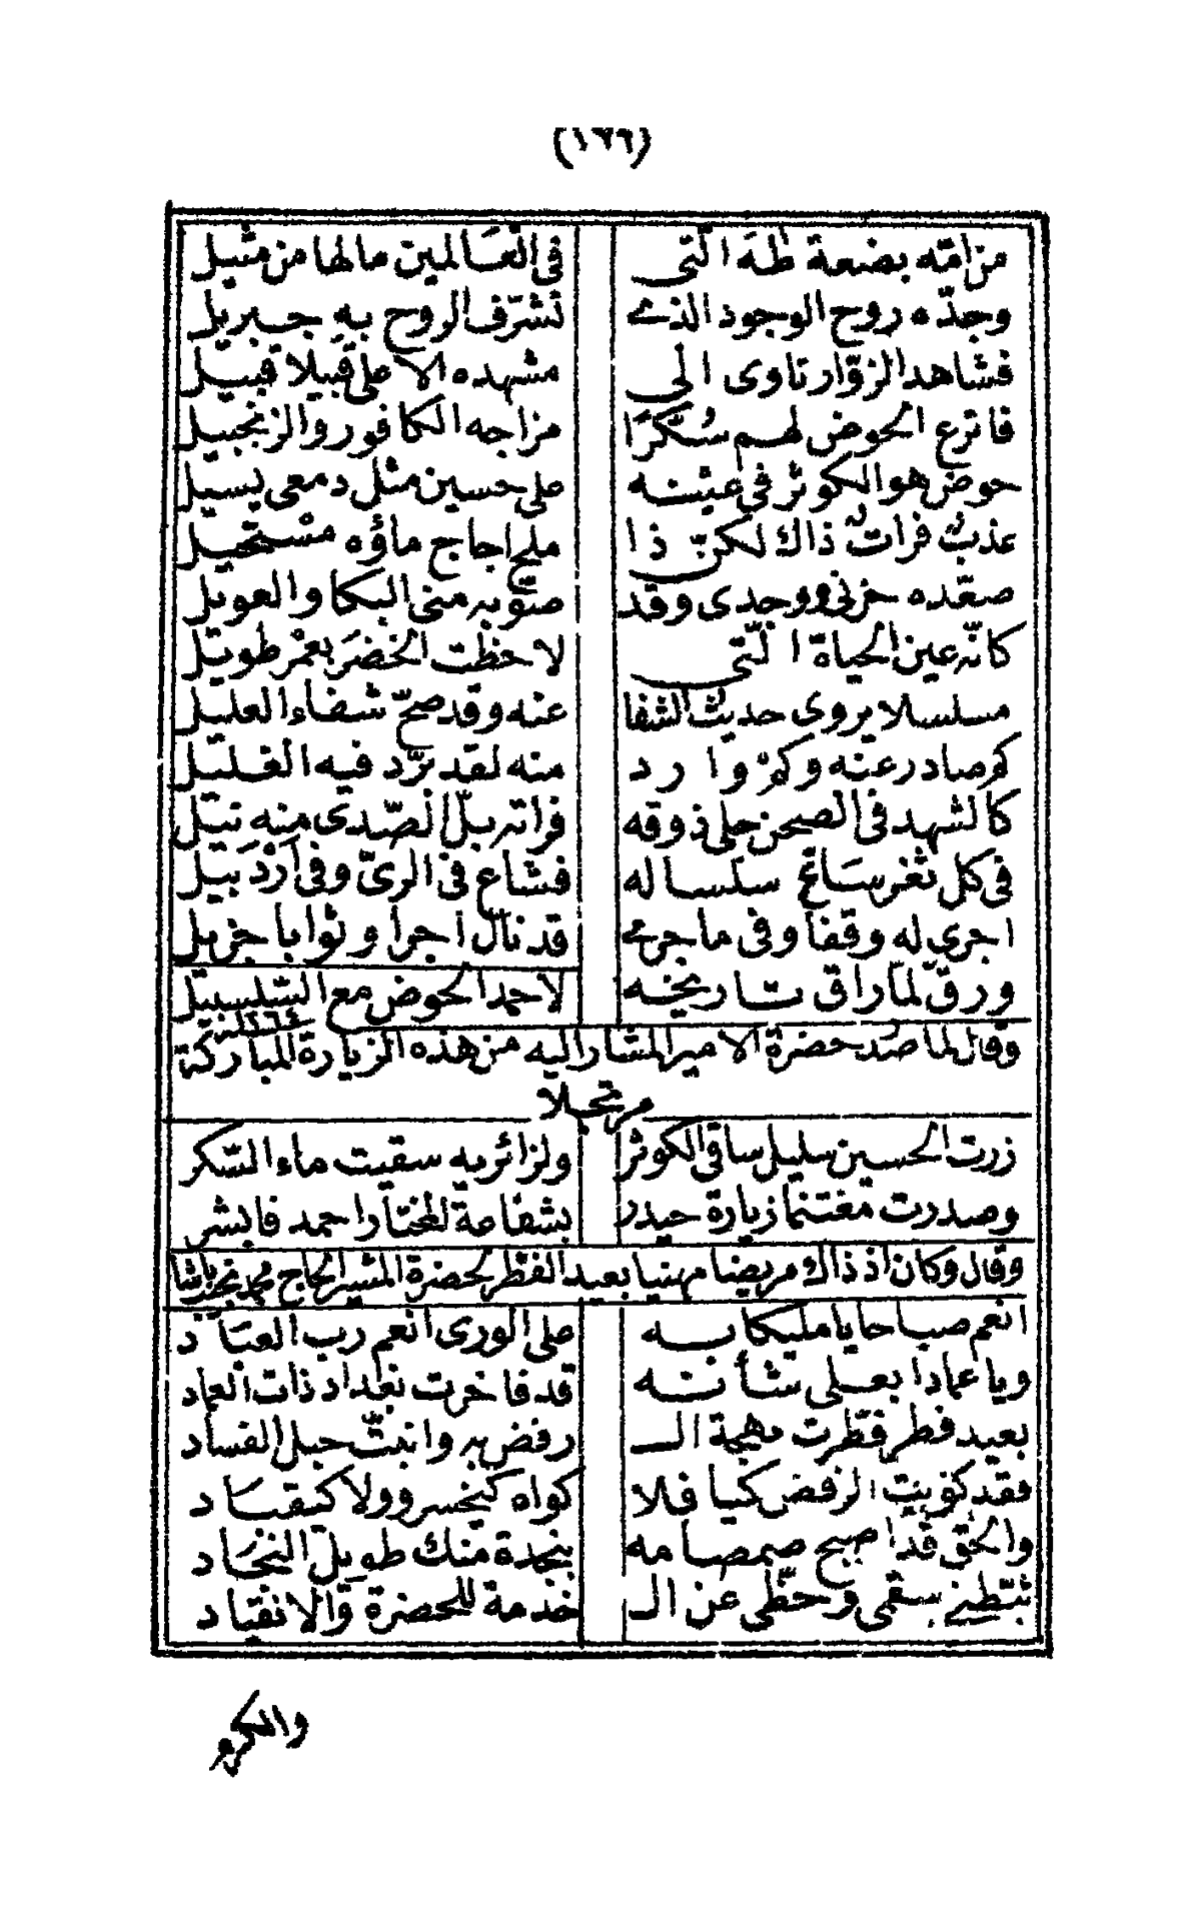 (١٦٦)
من امّه بضعة طه الّتى في العالمين مالها من مثيل
وجدّه روح الوجود الذى تشرّف الروح به جبريل
فشاهد الزوّار تاوى الى مشهده الاعلى قبيلا قبيل
فاترع الحوض لهم سكّرا مزاجه الكافور والزنجبيل
حوض هو الكوثر في عينه على حسين مثل دمعى يسيل
عذب فرات ذاك لكنّ ذا ملح اجاج ماؤه مستحيل
صعّده حزني ووجدى وقد صوّبه منى البكا والعويل
كانّه عين الحياة الّتى لاحظت الخضر بعمر طويل
مسلسلا يروى حديث الشفا عنه وقد صحّ شفاء العليل
كم صادر عنه وكم وارد منه لقد برّد فيه الغليل
كالشهد في الصحن حلى ذوقه فراته بلّ الصّدى منه نيل
في كل ثغر سائغ سلساله فشاع في الرىّ وفي اردبيل
اجرى له وقفا وفي ماجرى قد نال اجرا وثوابا جزيل
ورقّ لمّا راق تاريخه لاحمد الحوض مع السّلسبيل
وقال لما صدر حضرة الامير المشار اليه من هذه الزيارة المباركة
مرتجلا
زرت الحسين سليل ساقى الكوثر ولزائريه سقيت ماء السّكر
وصدرت مغتنما زيارة حيدر بشفاعة المختار احمد فابشر
وقال وكان اذ ذاك مريضا مهنيا بعيد الفطر لحضرة المشير الحاج محمد نجيب پاشا
انعم صباحا يا مليكا به على الورى انعم رب العباد
ويا عمادا بعلى شأنه قد فاخرت بغداد ذات العماد
بعيد فطر فطّرت مهجة الـ رفض به وانبتّ حبل الفساد
فقد كويت الرفض كيا فلا كواه كيخسرو ولا كيقباد
والحق قد اصبح صمصامه بنجدة منك طويل النجاد
ثبّطنى سقمى وحظّى عن الـ خدمة للحضرة والانقياد
والكرم